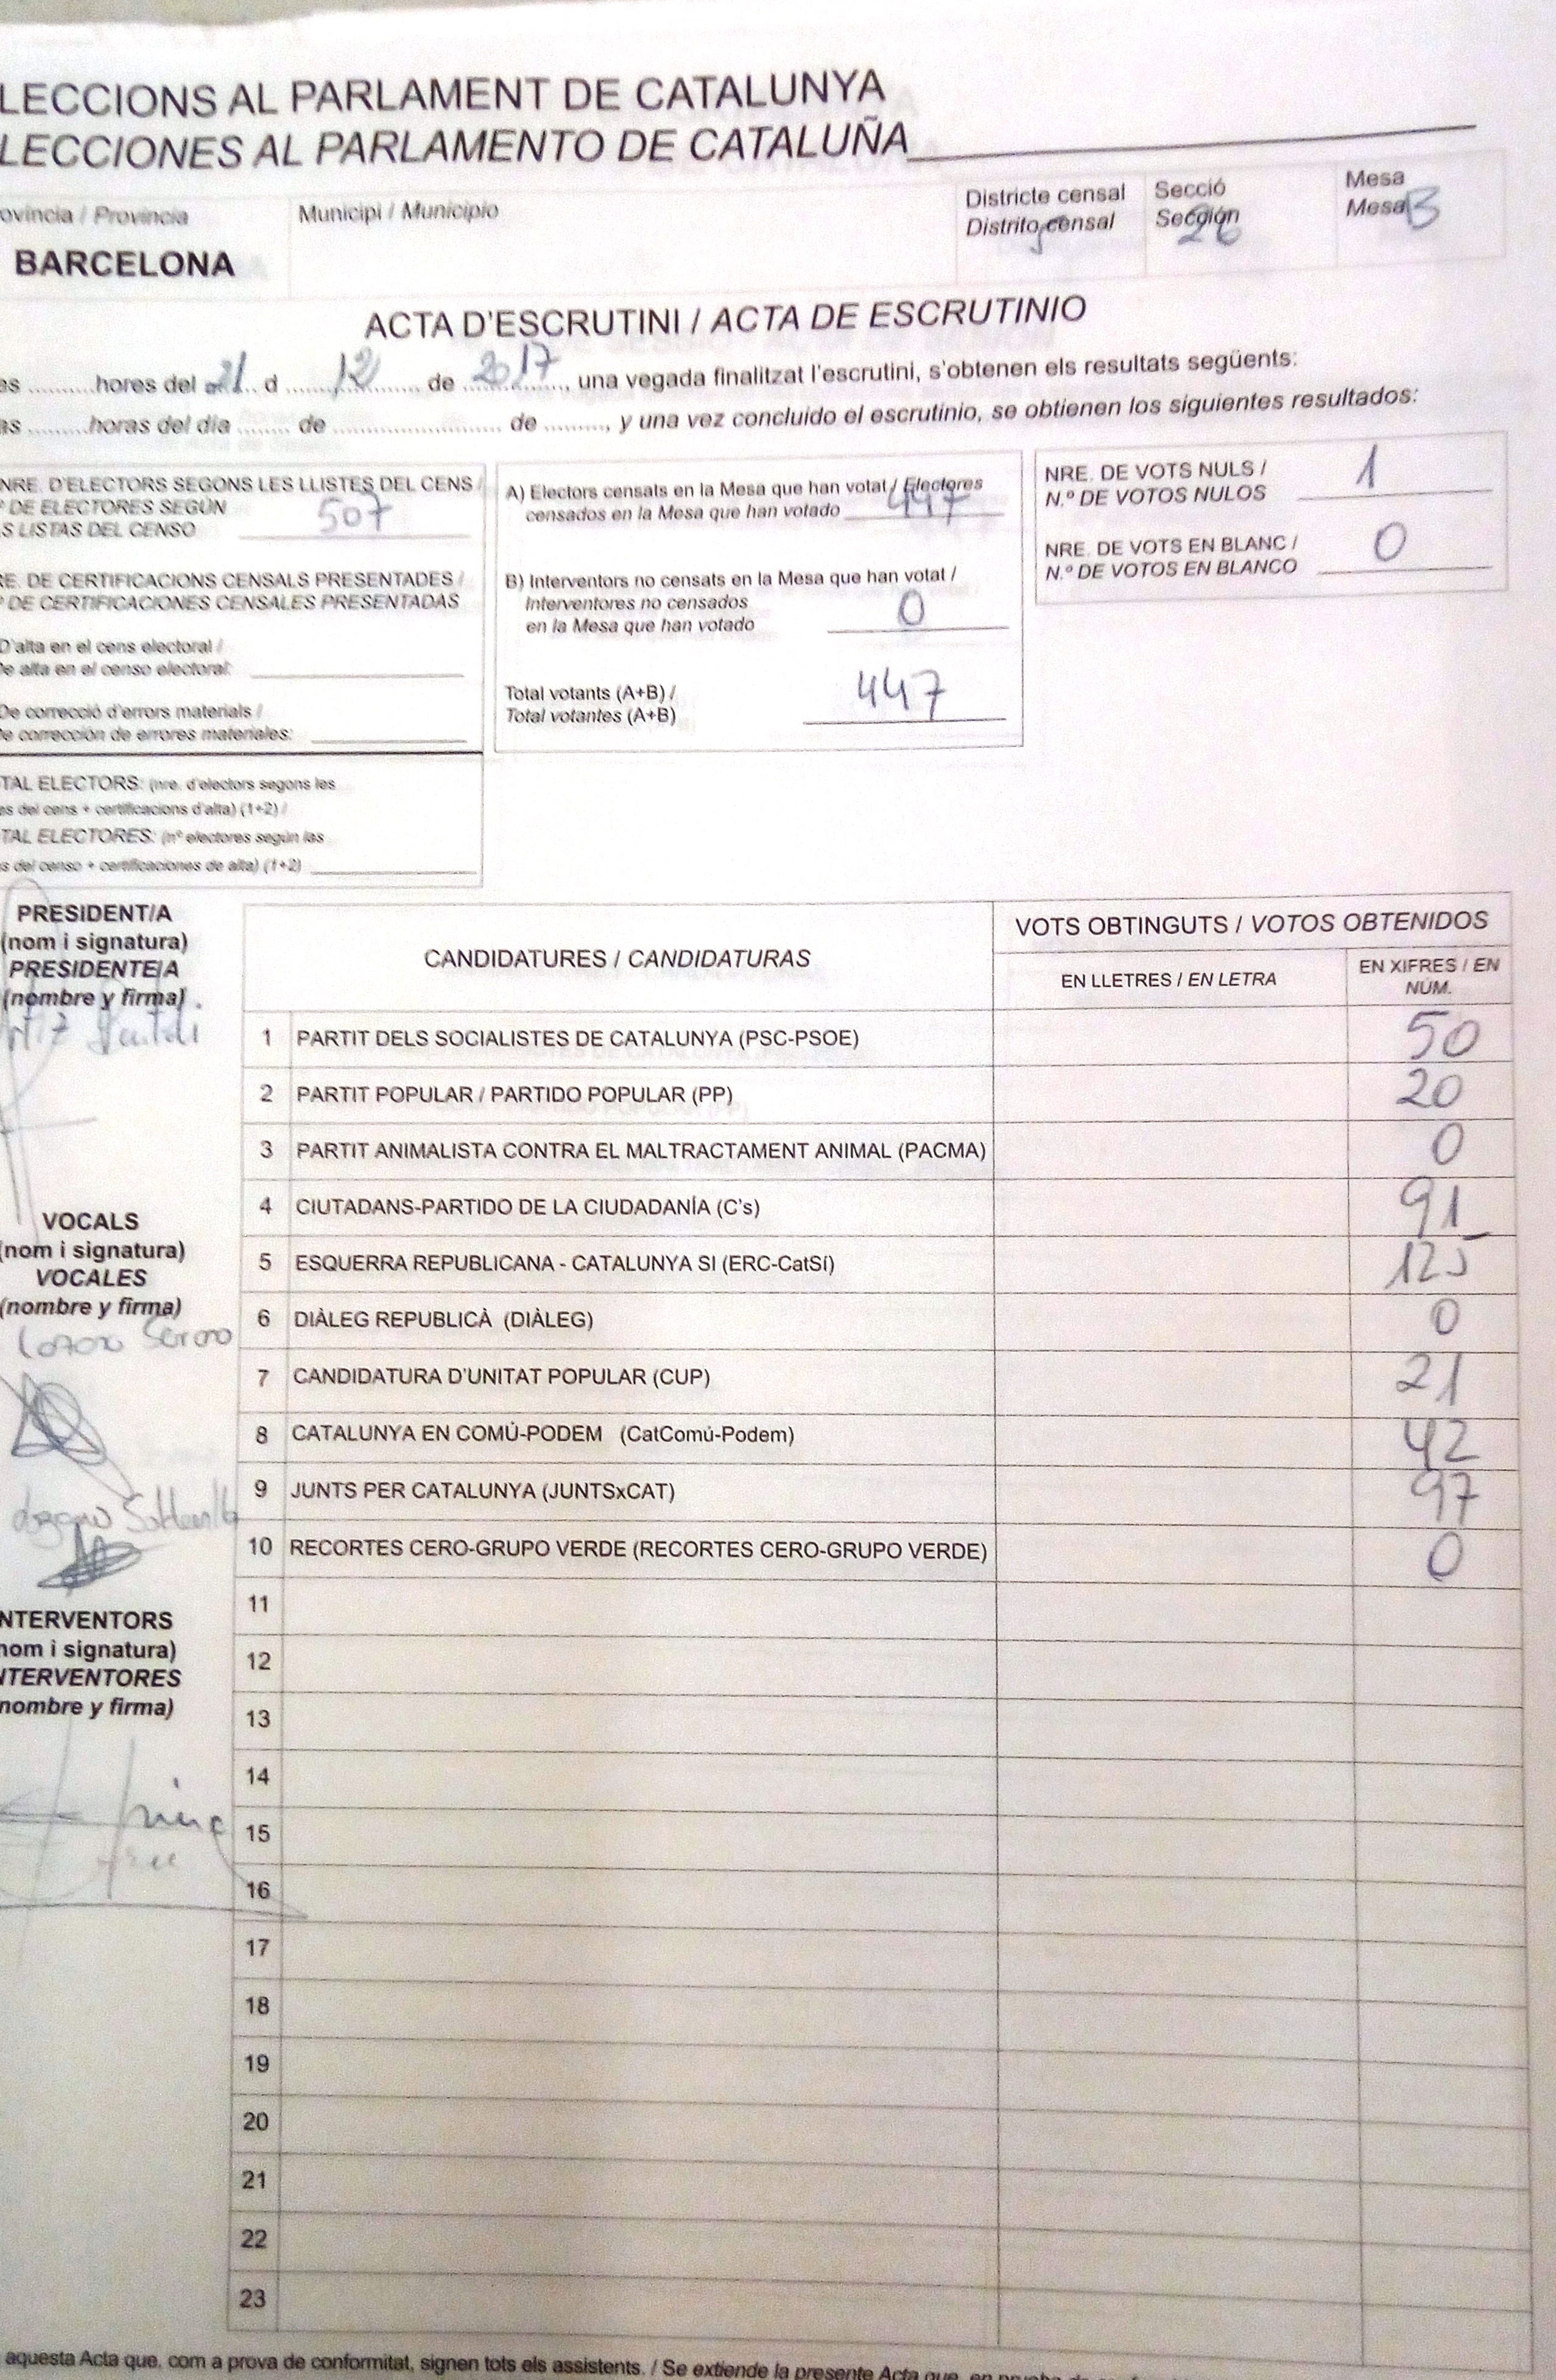 LECCIONS AL PARLAMENT DE CATALUNYA
LECCIONES AL PARLAMENTO DE CATALUÑA
ovíncia / Provincia
Municipi / Municipio
Districte censal
Distrito censal
Secció
Sección
26
Mesa
Mesa B
BARCELONA
ACTA D'ESCRUTINI / ACTA DE ESCRUTINIO
es .......... hores del 21 d 12 de 2017, una vegada finalitzat l'escrutini, s'obtenen els resultats següents:
as ......... horas del día ........ de .......................... de ........., y una vez concluido el escrutinio, se obtienen los siguientes resultados:
NRE. D'ELECTORS SEGONS LES LLISTES DEL CENS /
º DE ELECTORES SEGÚN
S LISTAS DEL CENSO 507
RE. DE CERTIFICACIONS CENSALS PRESENTADES /
º DE CERTIFICACIONES CENSALES PRESENTADAS
D'alta en el cens electoral /
De alta en el censo electoral:
De correcció d'errors materials /
De corrección de errores materiales:
TAL ELECTORS: (nre. d'electors segons les
es del cens + certificacions d'alta) (1+2) /
TAL ELECTORES: (nº electores según las
s del censo + certificaciones de alta) (1+2)
A) Electors censats en la Mesa que han votat / Electores
censados en la Mesa que han votado 447
B) Interventors no censats en la Mesa que han votat /
Interventores no censados
en la Mesa que han votado 0
Total votants (A+B) /
Total votantes (A+B) 447
NRE. DE VOTS NULS /
N.º DE VOTOS NULOS 1
NRE. DE VOTS EN BLANC /
N.º DE VOTOS EN BLANCO 0
PRESIDENT/A
(nom i signatura)
PRESIDENTE/A
(nombre y firma)
VOCALS
(nom i signatura)
VOCALES
(nombre y firma)
NTERVENTORS
nom i signatura)
NTERVENTORES
nombre y firma)
CANDIDATURES / CANDIDATURAS
VOTS OBTINGUTS / VOTOS OBTENIDOS
EN LLETRES / EN LETRA
EN XIFRES / EN
NÚM.
1 PARTIT DELS SOCIALISTES DE CATALUNYA (PSC-PSOE) 50
2 PARTIT POPULAR / PARTIDO POPULAR (PP) 20
3 PARTIT ANIMALISTA CONTRA EL MALTRACTAMENT ANIMAL (PACMA) 0
4 CIUTADANS-PARTIDO DE LA CIUDADANÍA (C's) 91
5 ESQUERRA REPUBLICANA - CATALUNYA SI (ERC-CatSí) 125
6 DIÀLEG REPUBLICÀ (DIÀLEG) 0
7 CANDIDATURA D'UNITAT POPULAR (CUP) 21
8 CATALUNYA EN COMÚ-PODEM (CatComú-Podem) 42
9 JUNTS PER CATALUNYA (JUNTSxCAT) 97
10 RECORTES CERO-GRUPO VERDE (RECORTES CERO-GRUPO VERDE) 0
11
12
13
14
15
16
17
18
19
20
21
22
23
aquesta Acta que, com a prova de conformitat, signen tots els assistents. / Se extiende la presente Acta que, en